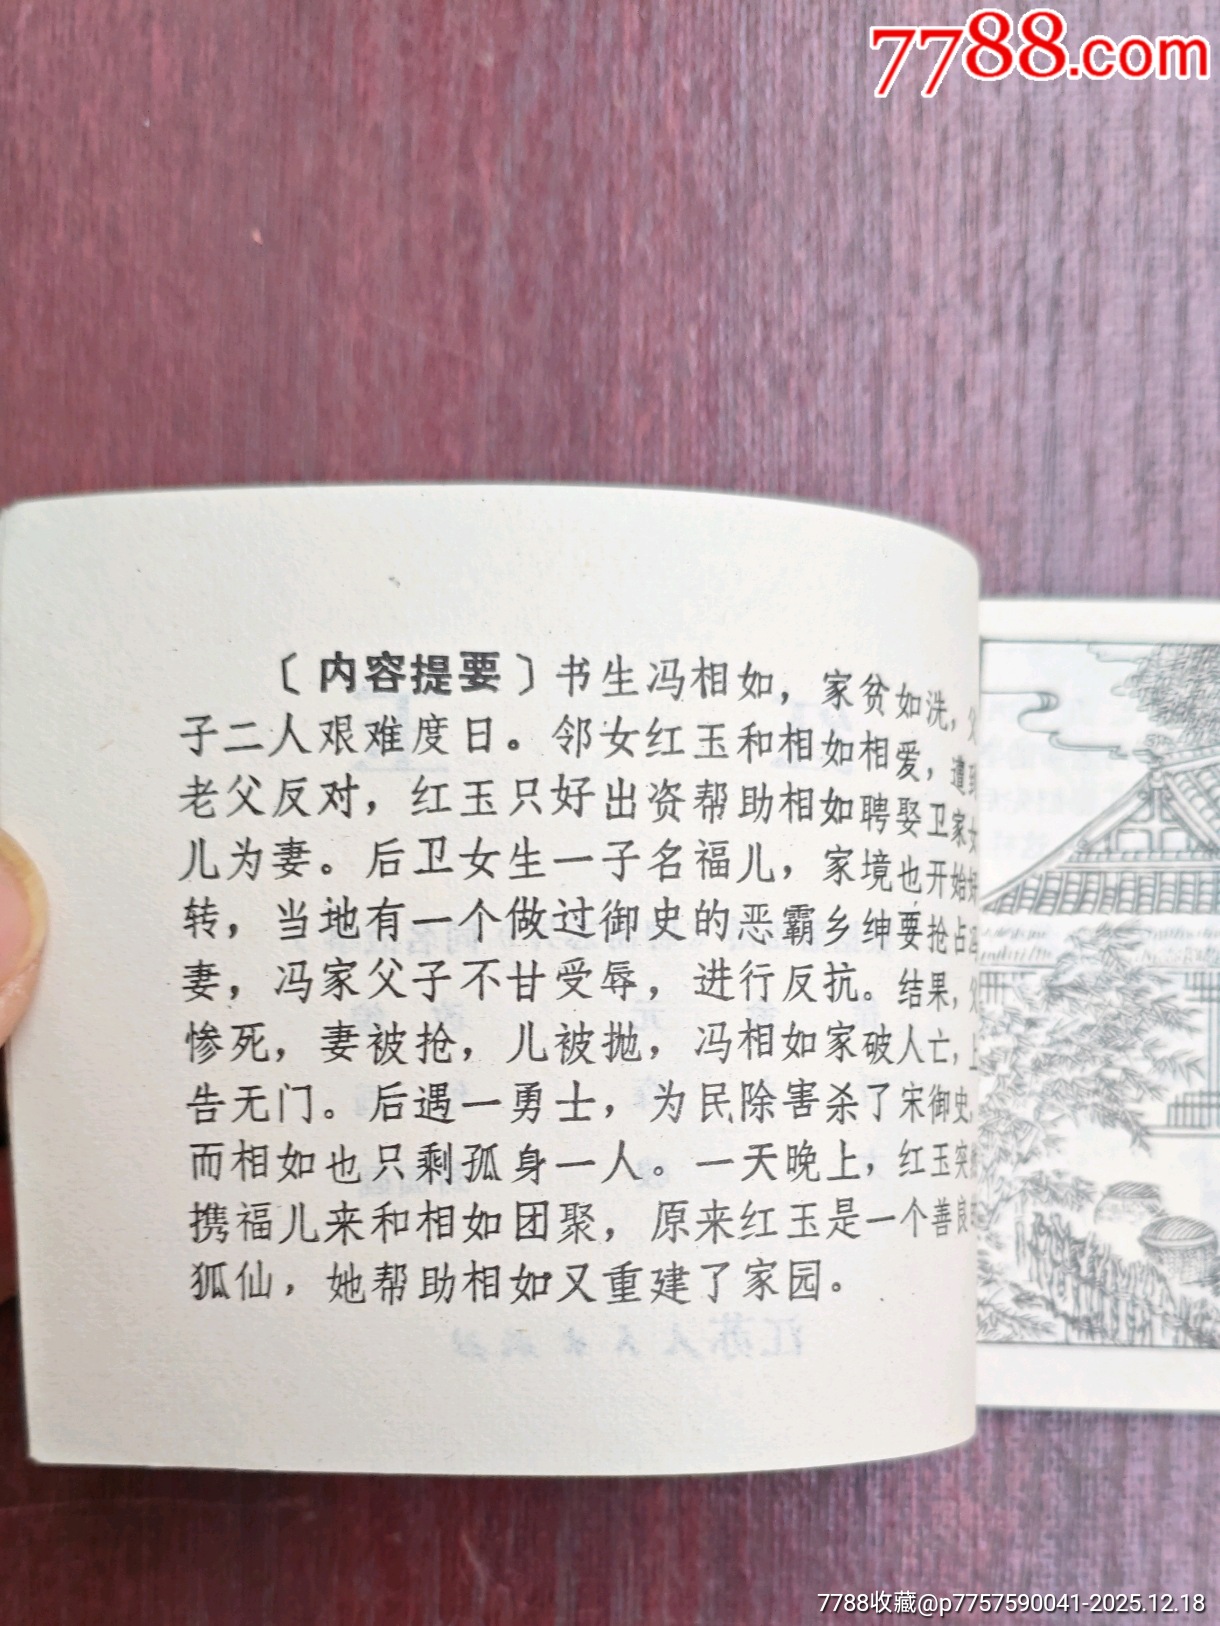 7788.com
〔内容提要〕书生冯相如，家贫如洗，父
子二人艰难度日。邻女红玉和相如相爱，遭到
老父反对，红玉只好出资帮助相如聘娶卫家女
儿为妻。后卫女生一子名福儿，家境也开始好
转，当地有一个做过御史的恶霸乡绅要抢占冯
妻，冯家父子不甘受辱，进行反抗。结果，父
惨死，妻被抢，儿被抛，冯相如家破人亡，上
告无门。后遇一勇士，为民除害杀了宋御史，
而相如也只剩孤身一人。一天晚上，红玉突然
携福儿来和相如团聚，原来红玉是一个善良的
狐仙，她帮助相如又重建了家园。
江苏人民出版社
7788收藏@p7757590041-2025.12.18